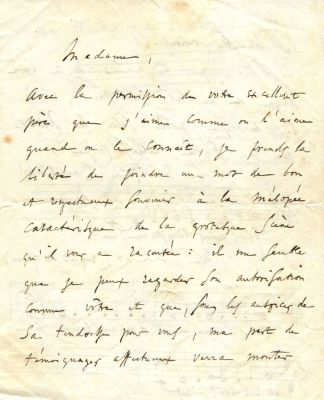 Madame,
Avec la permission de votre excellent
père que j'aime comme on l'aime
quand on le connaît, je prends la
liberté de joindre un mot de bon
et respectueux souvenir à la mélopée
caractéristique de la grotesque scène
qu'il vous a racontée : il me semble
que je peux regarder son autorisation
comme vôtre et que, sous les auspices de
sa tendresse pour vous, ma part de
témoignages affectueux verra monter